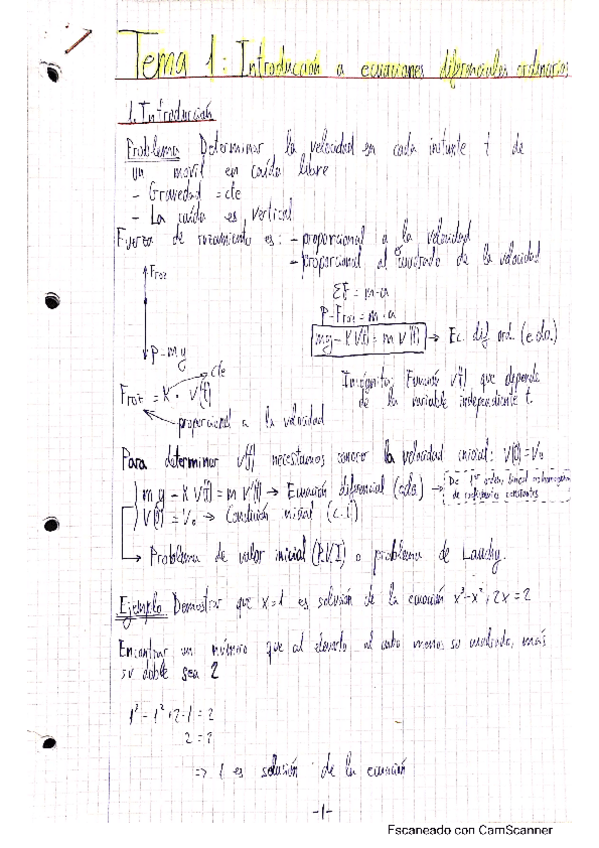 Tema 1: Introducción a ecuaciones diferenciales ordinarias
1. Introducción
Problema Determinar la velocidad en cada instante t de
un movil en caída libre
- Gravedad = cte
- La caída es vertical
Fuerza de rozamiento es: - proporcional a la velocidad
- proporcional al cuadrado de la velocidad
Froz
ΣF = m·a
P - Froz = m·a
mg - K V(t) = m V'(t) → Ec. dif ord. (e.do.)
P = mg
cte
Incógnita: Función v(t) que depende
Froz = K · v(t)
de la variable independiente t.
proporcional a la velocidad
Para determinar v(t) necesitamos conocer la velocidad inicial: V(0) = V₀
mg - K V(t) = m V'(t) → Ecuación diferencial (edo) → De 1er orden, lineal
de coeficientes constantes
V(0) = V₀ → Condición inicial (c.i)
→ Problema de valor inicial (P.V.I) o problema de Cauchy.
Ejemplo Demostrar que x=1 es solución de la ecuación x³-x²+2x=2
Encontrar un número que al elevarlo al cubo menos su cuadrado, más
su doble sea 2
1³ - 1² + 2·1 = 2
2 = 2
=> 1 es solución de la ecuación
-1-
Escaneado con CamScanner